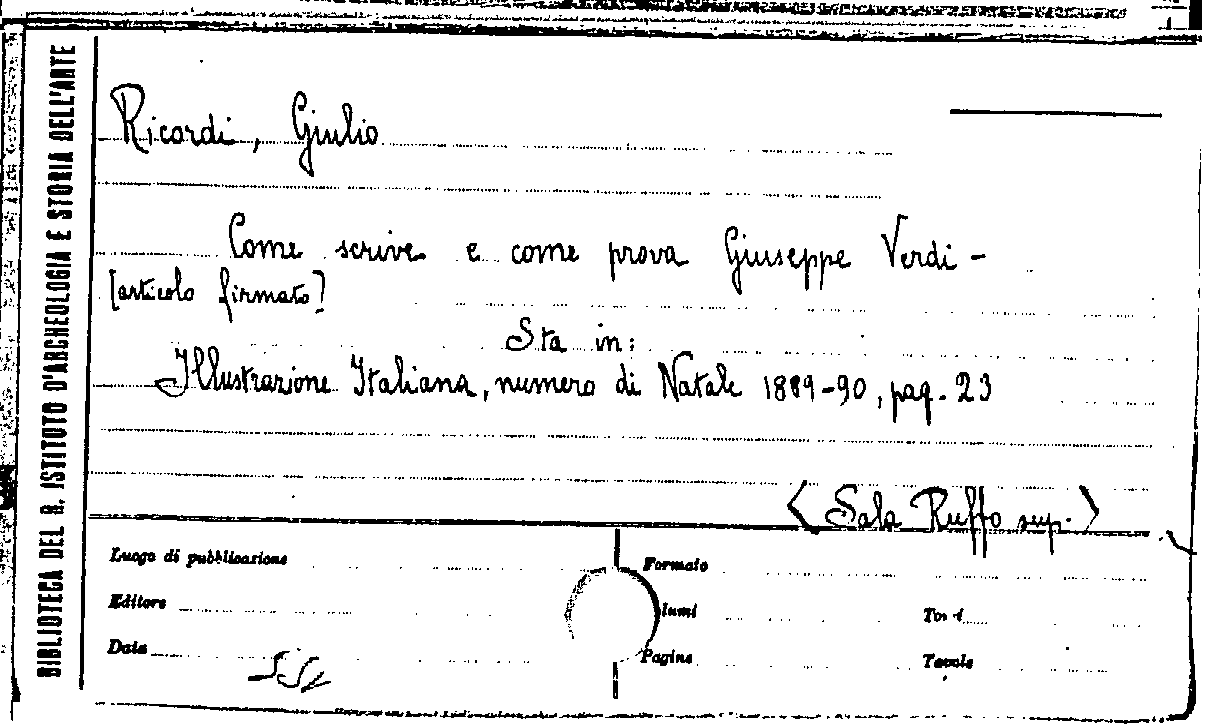 BIBLIOTECA DEL R. ISTITUTO D'ARCHEOLOGIA E STORIA DELL'ARTE
Ricordi, Giulio
Come scrive e come prova Giuseppe Verdi -
[articolo firmato]
Sta in:
Illustrazione Italiana, numero di Natale 1889-90, pag. 23
< Sala Ruffo sup. >
Luogo di pubblicazione
Formato
Editore
lumi
Data
Pagine
Tavole